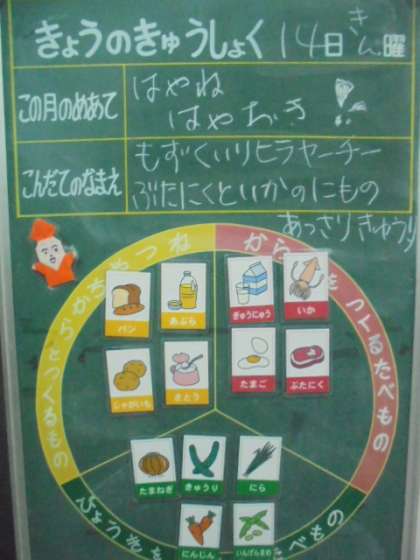 きょうのきゅうしょく 14日 きん曜
この月のめあて
はやね
はやおき
こんだてのなまえ
もずくいりヒラヤーチー
ぶたにくといかのにもの
あっさりきゅうり
ねつやちからをつくるもの
からだをつくるたべもの
パン
あぶら
ぎゅうにゅう
いか
じゃがいも
さとう
たまご
ぶたにく
たまねぎ
きゅうり
にら
にんじん
いんげんまめ